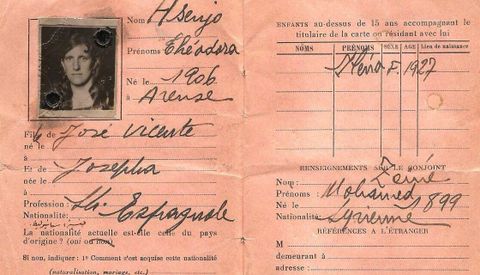 Nom Asenjo
Prénoms Théodora
Né le 1906
à Arense
Fille de José Vicente
Et de Josepha
née le
à
Profession: S/p.
Nationalité: Espagnole
La nationalité actuelle est-elle celle du pays
d'origine? (oui ou non)
Si non, indiquer: 1° Comment s'est acquise cette nationalité
(naturalisation, mariage, etc.)
ENFANTS au-dessus de 15 ans accompagnant le
titulaire de la carte ou résidant avec lui
NOMS PRÉNOMS SEXE AGE Lieu de naissance
F. 1927
RENSEIGNEMENTS SUR LE CONJOINT
Nom:
Prénoms: Mohamed
Né le 1899
Nationalité: Syrienne
RÉFÉRENCES A L'ÉTRANGER
M
demeurant à
adresse: